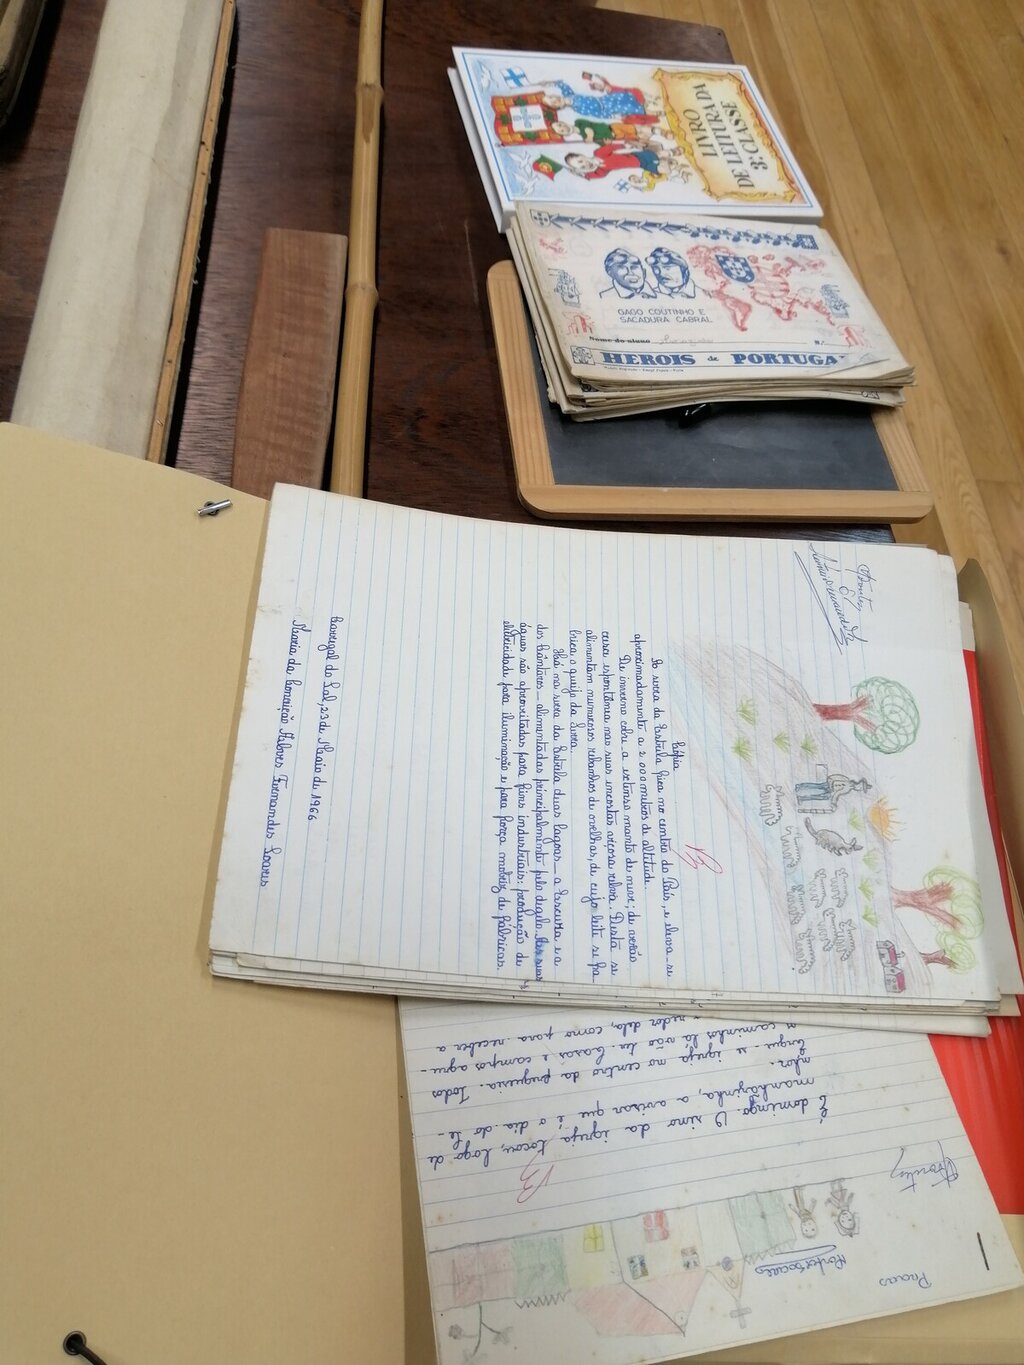 LIVRO
DE LEITURA DA
3ª CLASSE
GAGO COUTINHO E
SACADURA CABRAL
Nome do aluno
N.º
HEROIS de PORTUGAL
Cópia
A serra da Estrela fica no centro do País, e eleva-se
aproximadamente a 2 000 metros de altitude.
De inverno cobre-a extenso manto de neve; de verão
cresce espontânea nas suas encostas viçosa relva. Desta se
alimentam numerosos rebanhos de ovelhas, de cujo leite se fa-
brica o queijo da Serra.
Há na serra da Estrela duas lagoas — a Escura e a
dos Cântaros — alimentadas principalmente pelo degelo. As suas
águas são aproveitadas para fins industriais: produção de
eletricidade para iluminação e para força motriz de fábricas.
Carregal do Sal, 23 de Maio de 1966
Maria da Conceição Neves Fernandes Soares
B
É domingo. O sino da igreja tocou, logo de
manhãzinha, a avisar que é o dia do Se-
nhor.
Ergue-se igreja no centro da freguesia. Todos
os caminhos lá vão ter. Casas e campos agru-
redor dela, como para receber a
B